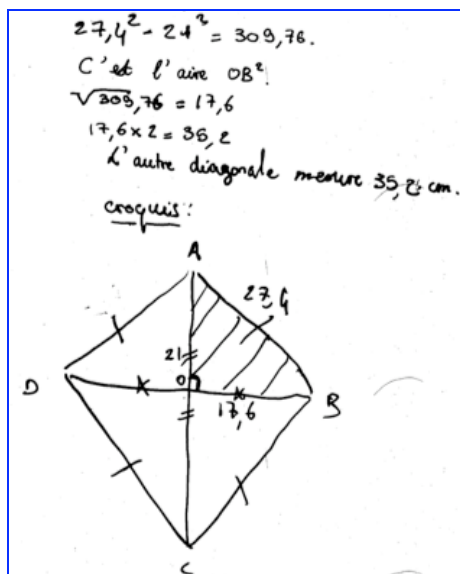 27,4² - 21² = 309,76.
C'est l'aire OB².
√309,76 = 17,6
17,6 x 2 = 35,2
L'autre diagonale mesure 35,2 cm.
croquis:
A
27,4
21
D
O
17,6
B
C